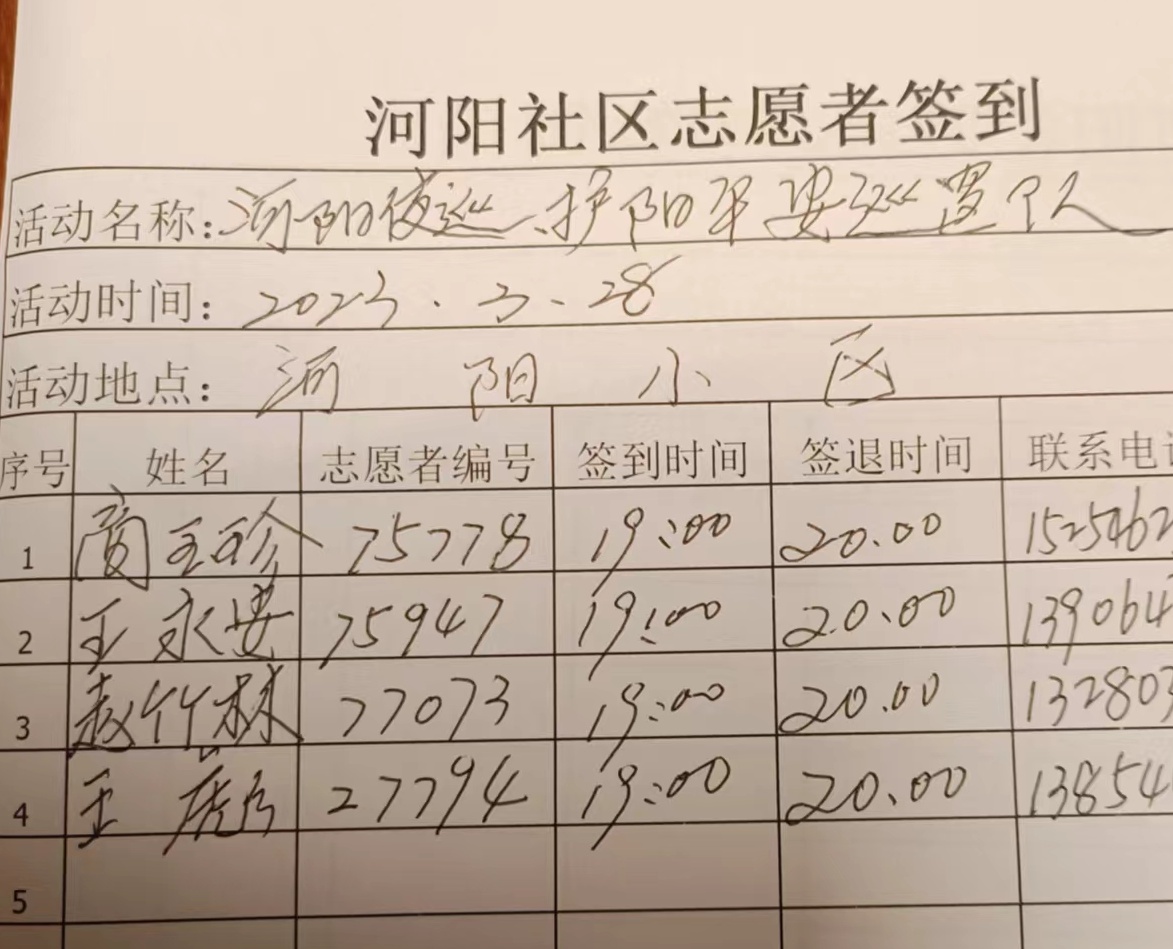 河阳社区志愿者签到
活动名称:河阳夜巡、护阳平安巡逻个人
活动时间: 2023.3.28
活动地点: 河 阳 小 区
序号 姓名 志愿者编号 签到时间 签退时间 联系电
1 商玉珍 75778 19:00 20.00 1525462
2 王永安 75947 19:00 20.00 139064
3 赵竹林 77073 19:00 20.00 132803
4 王 27794 19:00 20.00 13854
5